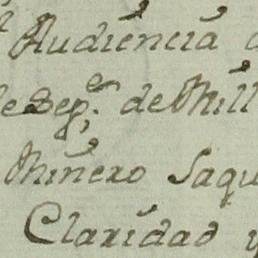 Audiencia
de Sep.e de Mill
Minero Saqu
Claridad y